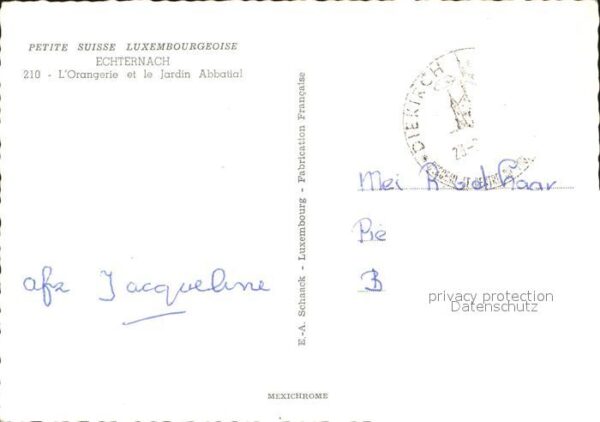 PETITE SUISSE LUXEMBOURGEOISE
ECHTERNACH
210 - L'Orangerie et le Jardin Abbatial
E.-A. Schaack - Luxembourg - Fabrication Française
DIEKIRCH
Mej
Pie
B
privacy protection
Datenschutz
afz Jacqueline
MEXICHROME